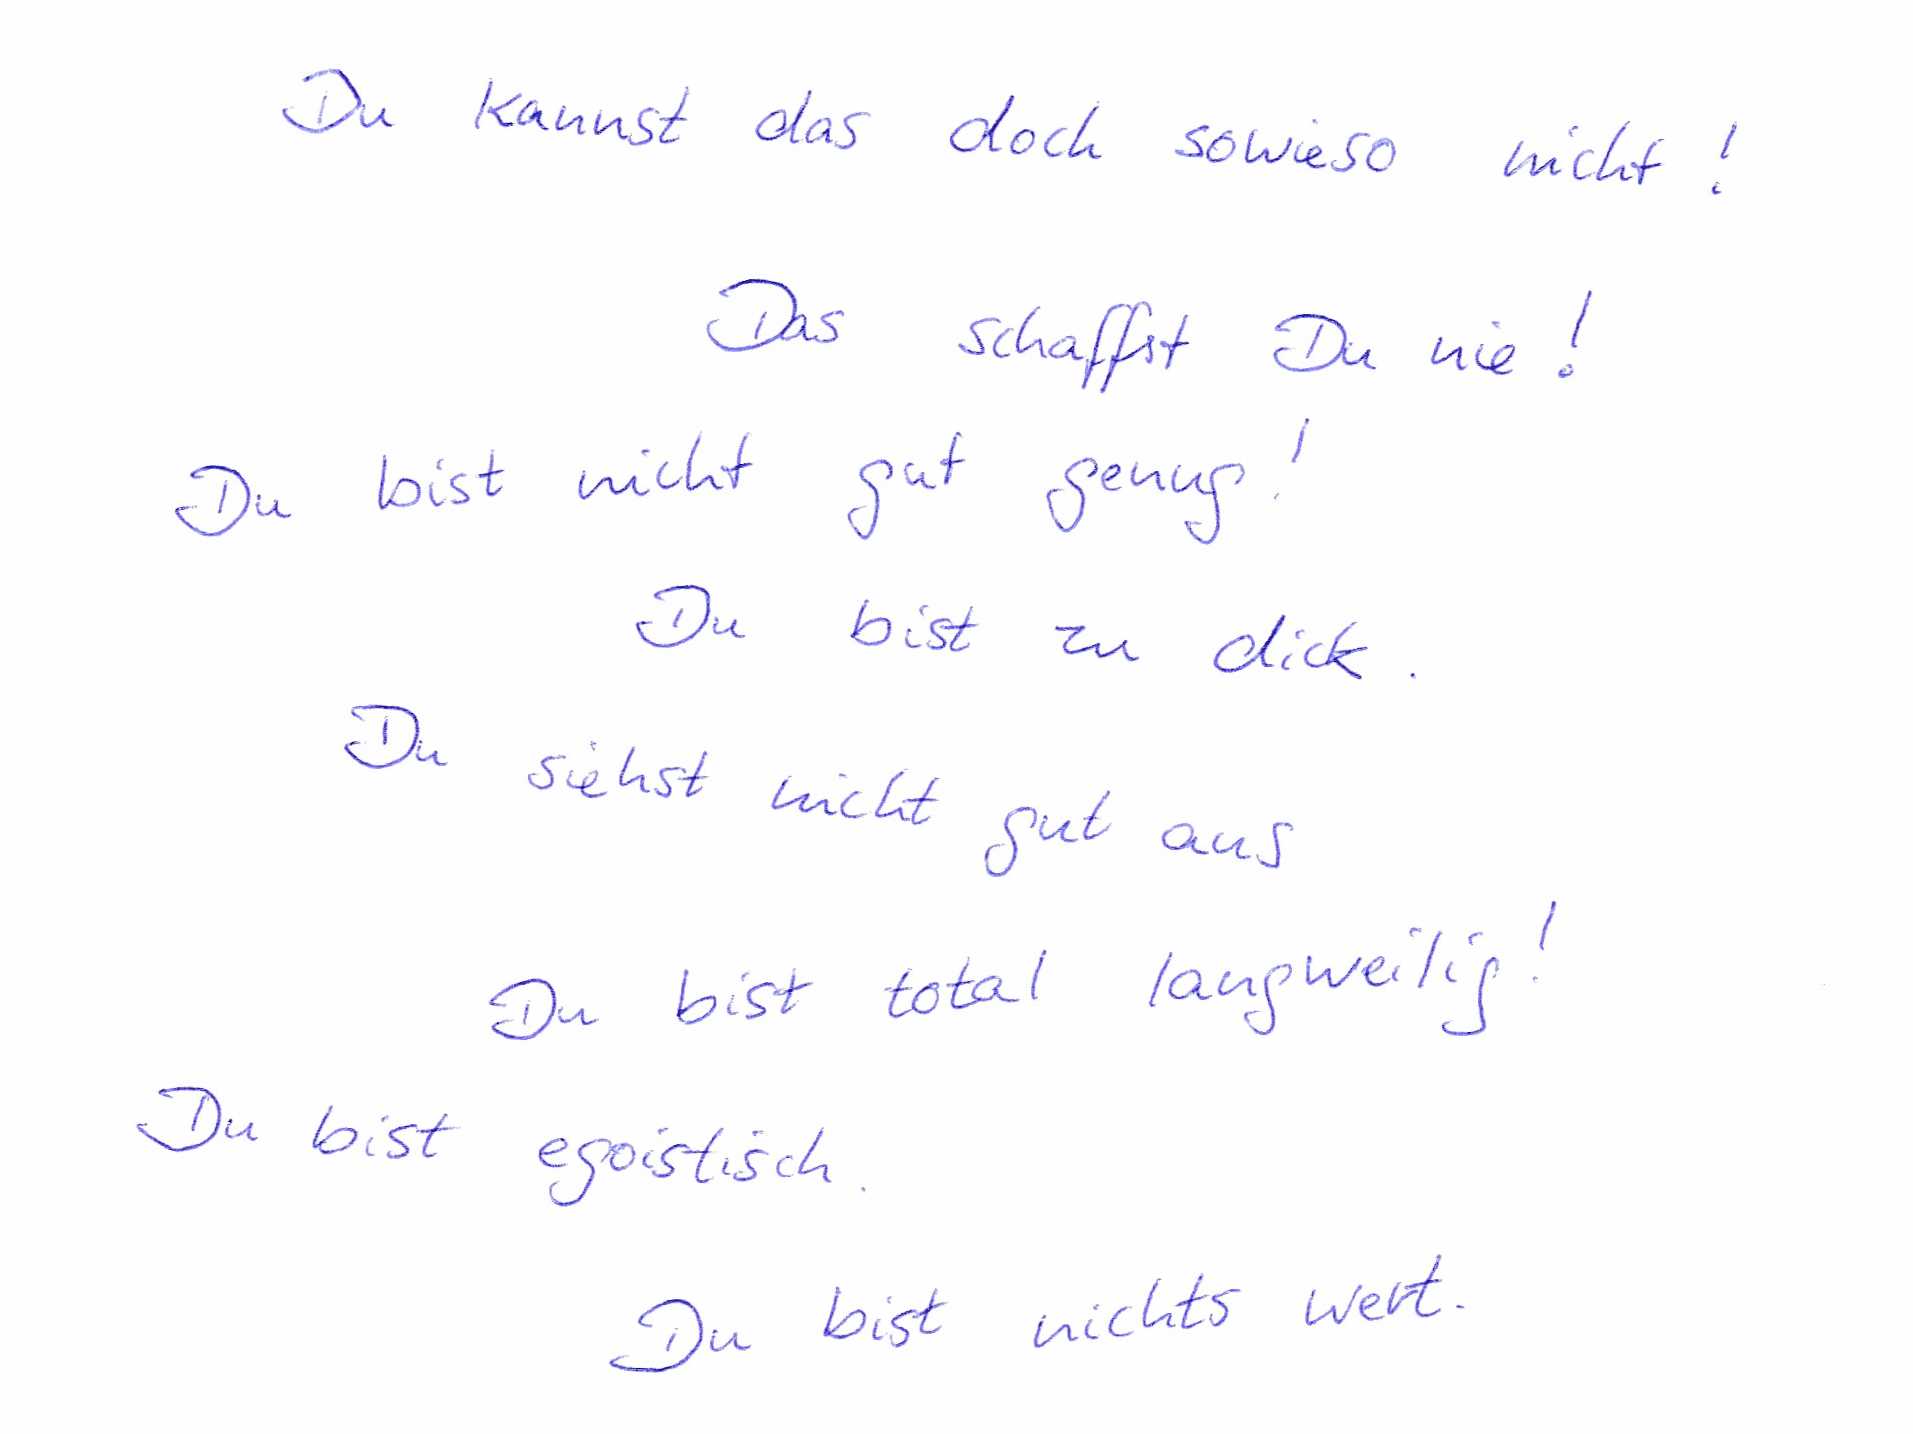 Du kannst das doch sowieso nicht!
Das schaffst Du nie!
Du bist nicht gut genug!
Du bist zu dick.
Du siehst nicht gut aus
Du bist total langweilig!
Du bist egoistisch.
Du bist nichts wert.